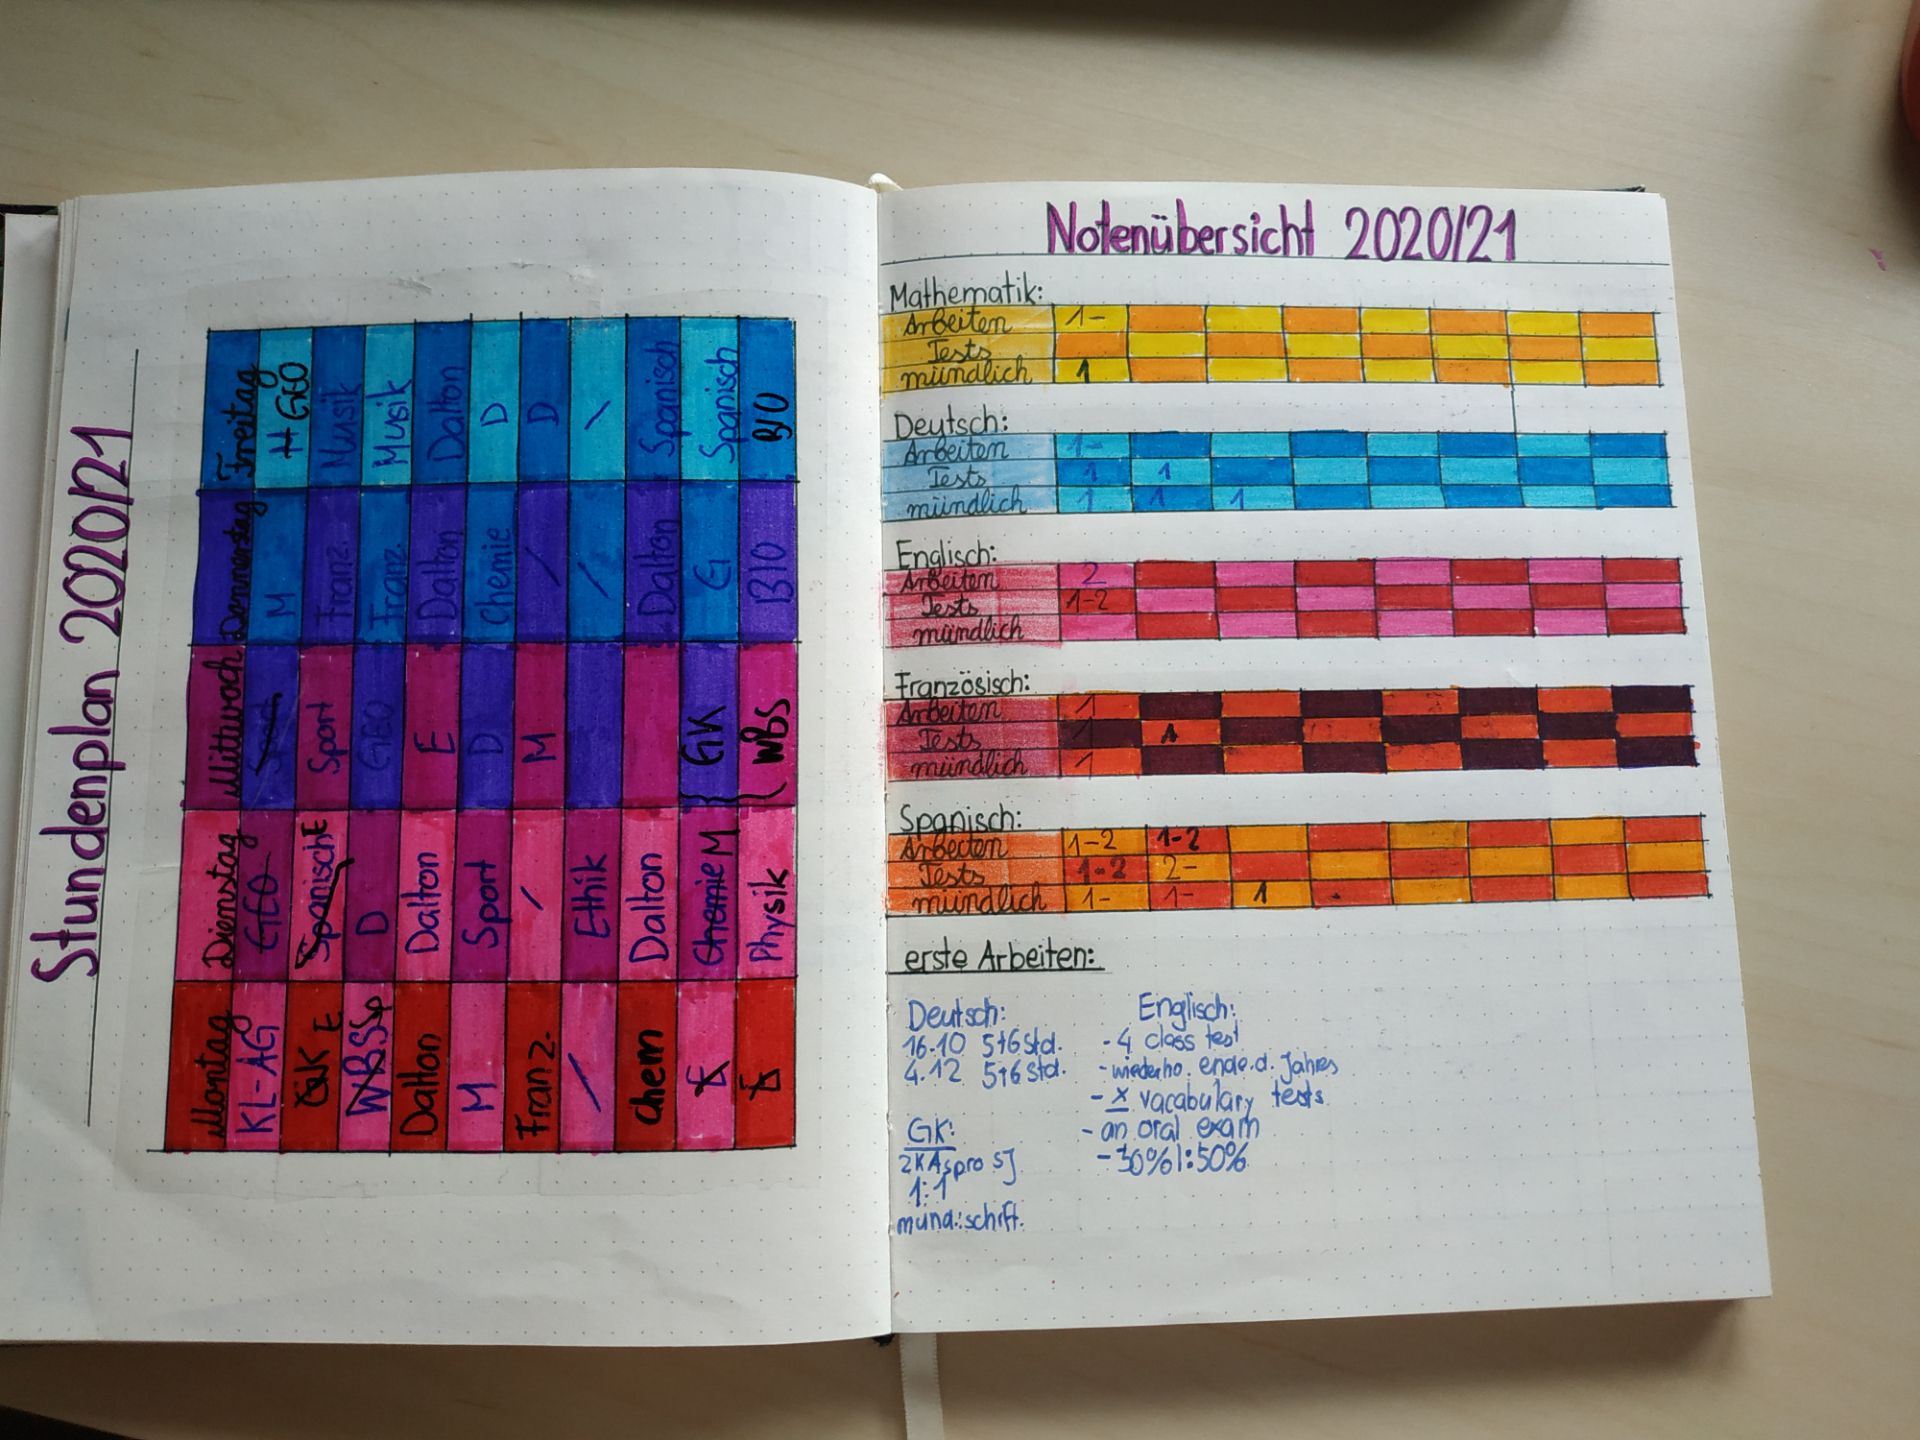 Stundenplan 2020/21
Montag Dienstag Mittwoch Donnerstag Freitag
KL-AG GEO Sport M H GEO
GK E Spanisch E Sport Franz. Musik
WBS Sp D GEO Franz. Musik
Dalton Dalton E Dalton Dalton
M Sport D Chemie D
Franz. / M / D
/ Ethik / \
Chem Dalton Dalton Spanisch
E Chemie M { GK G Spanisch
E Physik { WBS BIO BIO
Notenübersicht 2020/21
Mathematik:
Arbeiten 1-
Tests
mündlich 1
Deutsch:
Arbeiten 1-
Tests 1 1
mündlich 1 1 1
Englisch:
Arbeiten 2
Tests 1-2
mündlich
Französisch:
Arbeiten 1
Tests 1 1
mündlich 1
Spanisch:
Arbeiten 1-2 1-2
Tests 1-2 2-
mündlich 1- 1- 1
erste Arbeiten:
Deutsch:
16.10 5+6 Std.
4.12 5+6 Std.
GK:
2KAs pro SJ
1:1
münd.:schrift.
Englisch:
- 4 class test
- wiederho. ende.d. Jahres
- x vacabulary tests
- an oral exam
50%